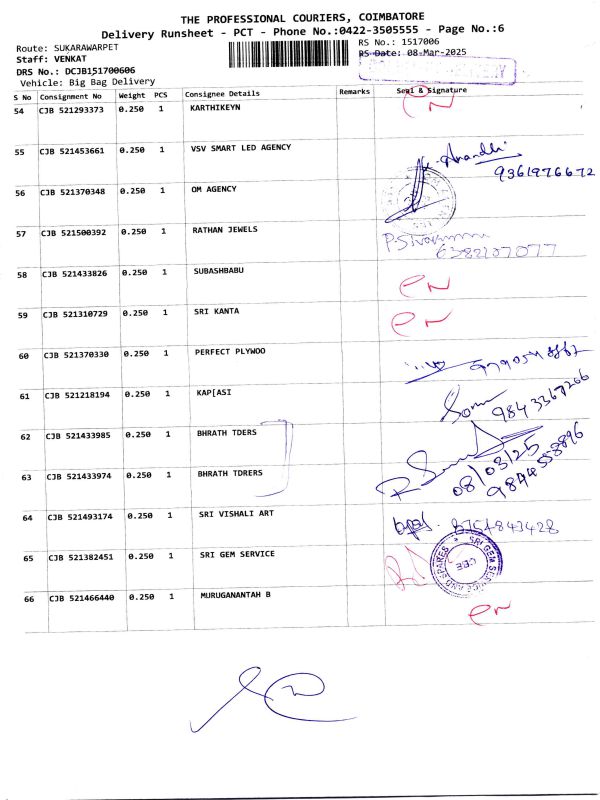 THE PROFESSIONAL COURIERS, COIMBATORE
Delivery Runsheet - PCT - Phone No.:0422-3505555 - Page No.:6
Route: SUKARAWARPET RS No.: 1517006
Staff: VENKAT RS Date: 08-Mar-2025
DRS No.: DCJB151700606
Vehicle: Big Bag Delivery
S No Consignment No Weight PCS Consignee Details Remarks Seal & Signature
54 CJB 521293373 0.250 1 KARTHIKEYN
55 CJB 521453661 0.250 1 VSV SMART LED AGENCY
9361976672
56 CJB 521370348 0.250 1 OM AGENCY
57 CJB 521500392 0.250 1 RATHAN JEWELS
6382107077
58 CJB 521433826 0.250 1 SUBASHBABU
59 CJB 521310729 0.250 1 SRI KANTA
60 CJB 521370330 0.250 1 PERFECT PLYWOO
61 CJB 521218194 0.250 1 KAP[ASI
9843367266
62 CJB 521433985 0.250 1 BHRATH TDERS
08/03/25
63 CJB 521433974 0.250 1 BHRATH TDRERS
9844558896
64 CJB 521493174 0.250 1 SRI VISHALI ART
65 CJB 521382451 0.250 1 SRI GEM SERVICE
SRI GEM SERVICE AND SPARES
CBE
66 CJB 521466440 0.250 1 MURUGANANTAH B